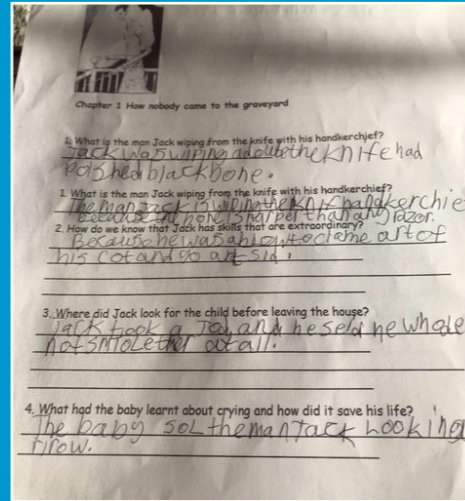 Chapter 1 How nobody came to the graveyard
1. What is the man Jack wiping from the knife with his handkerchief?
Jack was wiping the knife had
polshed black bone.
1. What is the man Jack wiping from the knife with his handkerchief?
The man Jack is wiping the knif hangkerchie
because the hone is harper than any razor.
2. How do we know that Jack has skills that are extraordinary?
Because he was able to clame art of
his cot and go art sid.
3. Where did Jack look for the child before leaving the house?
Jack took a and he seld he whole
not smiole ther at all.
4. What had the baby learnt about crying and how did it save his life?
The baby sol the man Jack Looking
rirow.